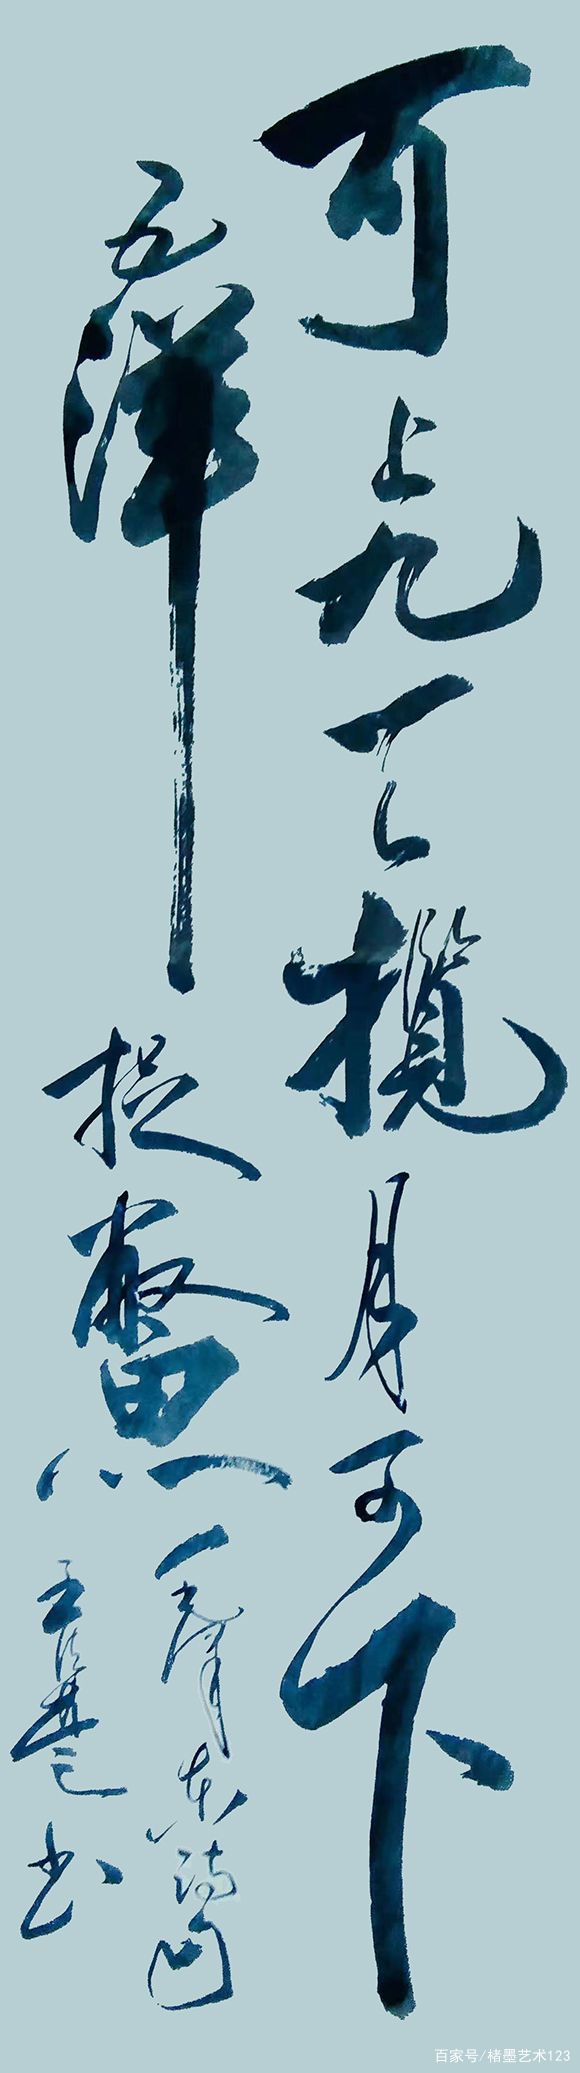 可上九天揽月可下
五洋捉鳖
毛泽东诗句
书
百家号/楮墨艺术123